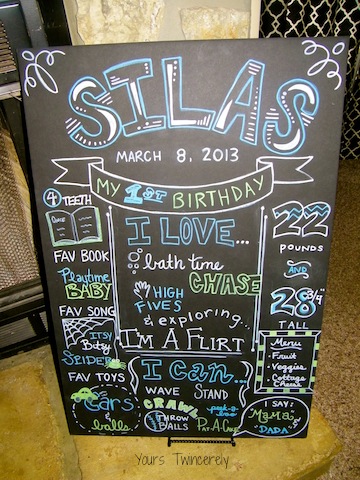 SILAS
MARCH 8, 2013
MY 1ST BIRTHDAY
4 TEETH
FAV BOOK
Playtime
BABY
FAV SONG
ITSY
Bity
SPIDER
FAV TOYS
Cars
&
balls
I LOVE...
bath time
CHASE
HIGH
FIVES
& exploring..
I'M A FLIRT
I Can...
WAVE STAND
CRAWL
peek-a-
boo
THROW
BALLS
PAT-A-Cake
22
POUNDS
AND
28 3/4"
TALL
Menu
• Fruit
• Veggies
• Cottage
Cheese
I SAY:
"MaMa"
"DADA"
Yours Twincerely